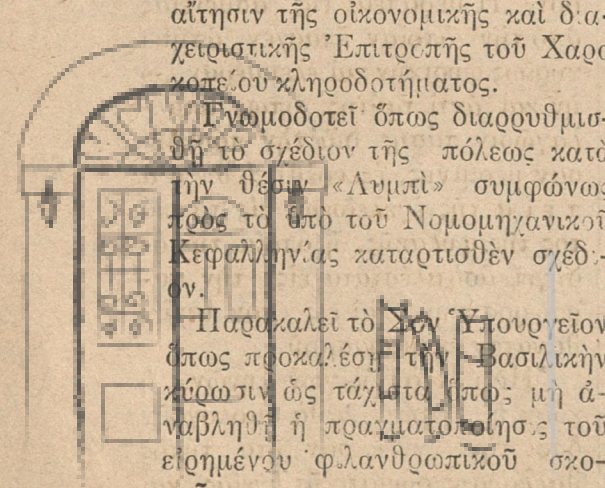 αἴτησιν τῆς οἰκονομικῆς καὶ δια-
χειριστικῆς Ἐπιτροπῆς τοῦ Χαρο
κοπείου κληροδοτήματος.
Γνωμοδοτεῖ ὅπως διαρρυθμισ-
θῇ τὸ σχέδιον τῆς πόλεως κατὰ
τὴν θέσιν «Λυμπὶ» συμφώνως
πρὸς τὸ ὑπὸ τοῦ Νομομηχανικοῦ
Κεφαλληνίας καταρτισθὲν σχέδι-
ον.
Παρακαλεῖ τὸ Σον Ὑπουργεῖον
ὅπως προκαλέσῃ τὴν Βασιλικὴν
κύρωσιν ὡς τάχιστα ὅπως μὴ ἀ-
ναβληθῇ ἡ πραγματοποίησις τοῦ
εἰρημένου φιλανθρωπικοῦ σκο-